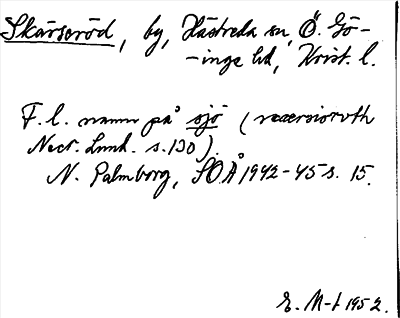 Skärseröd, by, Hästveda sn, Ö. Gö-
-inge hd, Krist. l.
F. l. namn på sjö (
Necr. Lund. s. 130).
N. Palmborg, SOÅ 1942-45 s. 15.
E. M-t 1952.